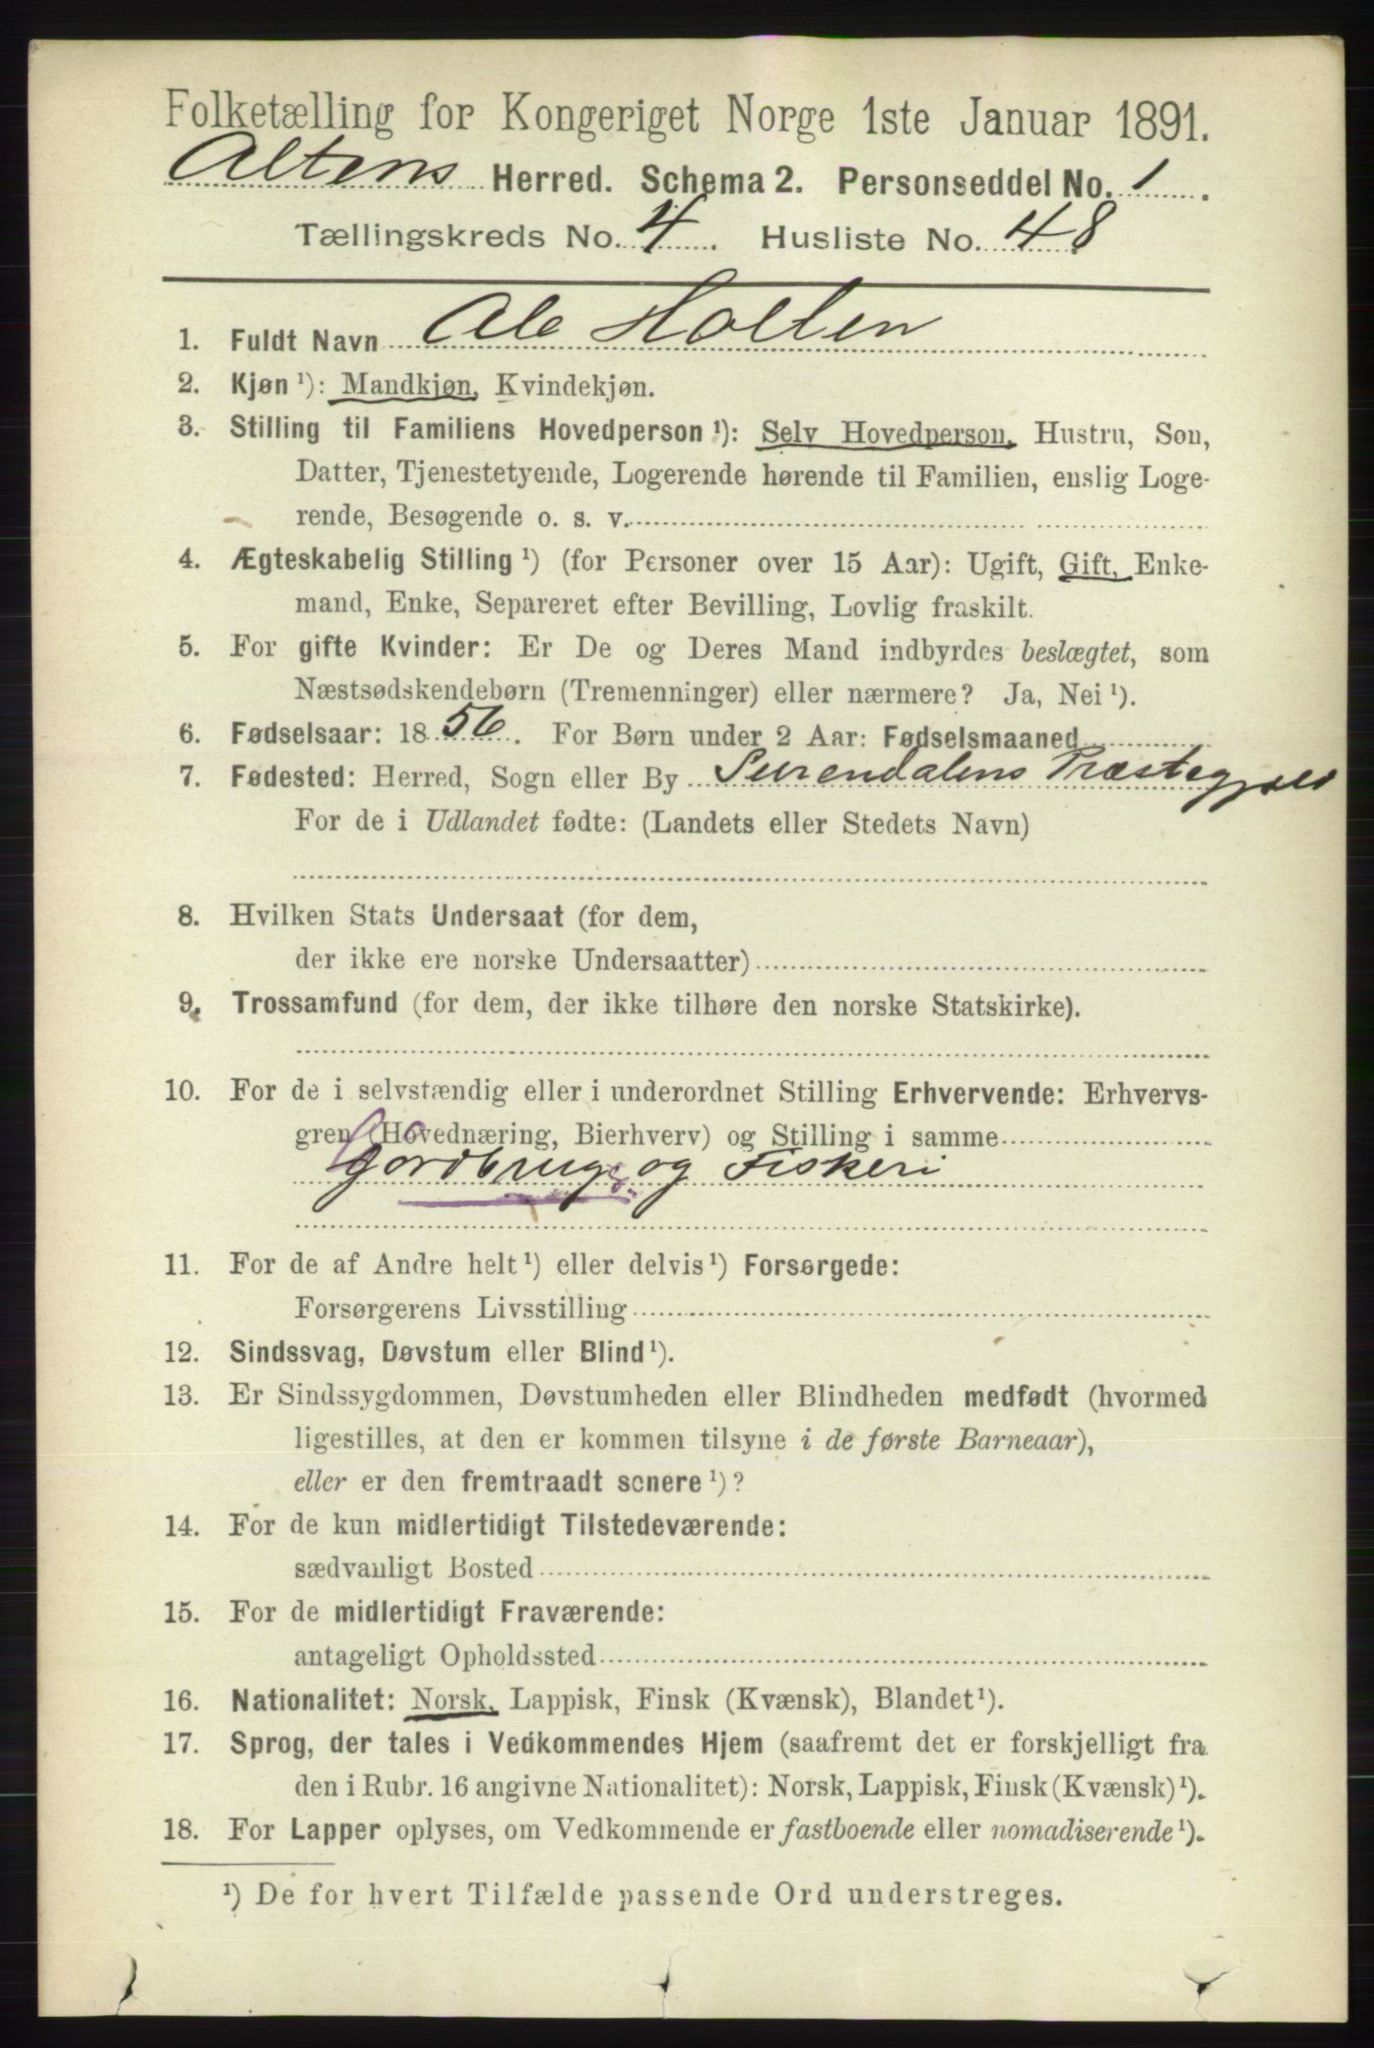 Folketælling for Kongeriget Norge 1ste Januar 1891.
Altens Herred. Schema 2. Personseddel No. 1.
Tællingskreds No. 4. Husliste No. 48
1. Fuldt Navn Ole Holten
2. Kjøn ¹): Mandkjøn, Kvindekjøn.
3. Stilling til Familiens Hovedperson ¹): Selv Hovedperson, Hustru, Søn,
Datter, Tjenestetyende, Logerende hørende til Familien, enslig Loge-
rende, Besøgende o. s. v.
4. Ægteskabelig Stilling ¹) (for Personer over 15 Aar): Ugift, Gift, Enke-
mand, Enke, Separeret efter Bevilling, Lovlig fraskilt.
5. For gifte Kvinder: Er De og Deres Mand indbyrdes beslægtet, som
Næstsødskendebørn (Tremenninger) eller nærmere? Ja, Nei ¹).
6. Fødselsaar: 1856. For Børn under 2 Aar: Fødselsmaaned
7. Fødested: Herred, Sogn eller By Surendalens Præstegjæld
For de i Udlandet fødte: (Landets eller Stedets Navn)
8. Hvilken Stats Undersaat (for dem,
der ikke ere norske Undersaatter)
9. Trossamfund (for dem, der ikke tilhøre den norske Statskirke).
10. For de i selvstændig eller i underordnet Stilling Erhvervende: Erhvervs-
gren (Hovednæring, Bierhverv) og Stilling i samme
Gordbrug og Fiskeri
11. For de af Andre helt ¹) eller delvis ¹) Forsørgede:
Forsørgerens Livsstilling
12. Sindssvag, Døvstum eller Blind ¹).
13. Er Sindssygdommen, Døvstumheden eller Blindheden medfødt (hvormed
ligestilles, at den er kommen tilsyne i de første Barneaar),
eller er den fremtraadt senere ¹)?
14. For de kun midlertidigt Tilstedeværende:
sædvanligt Bosted
15. For de midlertidigt Fraværende:
antageligt Opholdssted
16. Nationalitet: Norsk, Lappisk, Finsk (Kvænsk), Blandet ¹).
17. Sprog, der tales i Vedkommendes Hjem (saafremt det er forskjelligt fra
den i Rubr. 16 angivne Nationalitet): Norsk, Lappisk, Finsk (Kvænsk) ¹).
18. For Lapper oplyses, om Vedkommende er fastboende eller nomadiserende ¹).
¹) De for hvert Tilfælde passende Ord understreges.